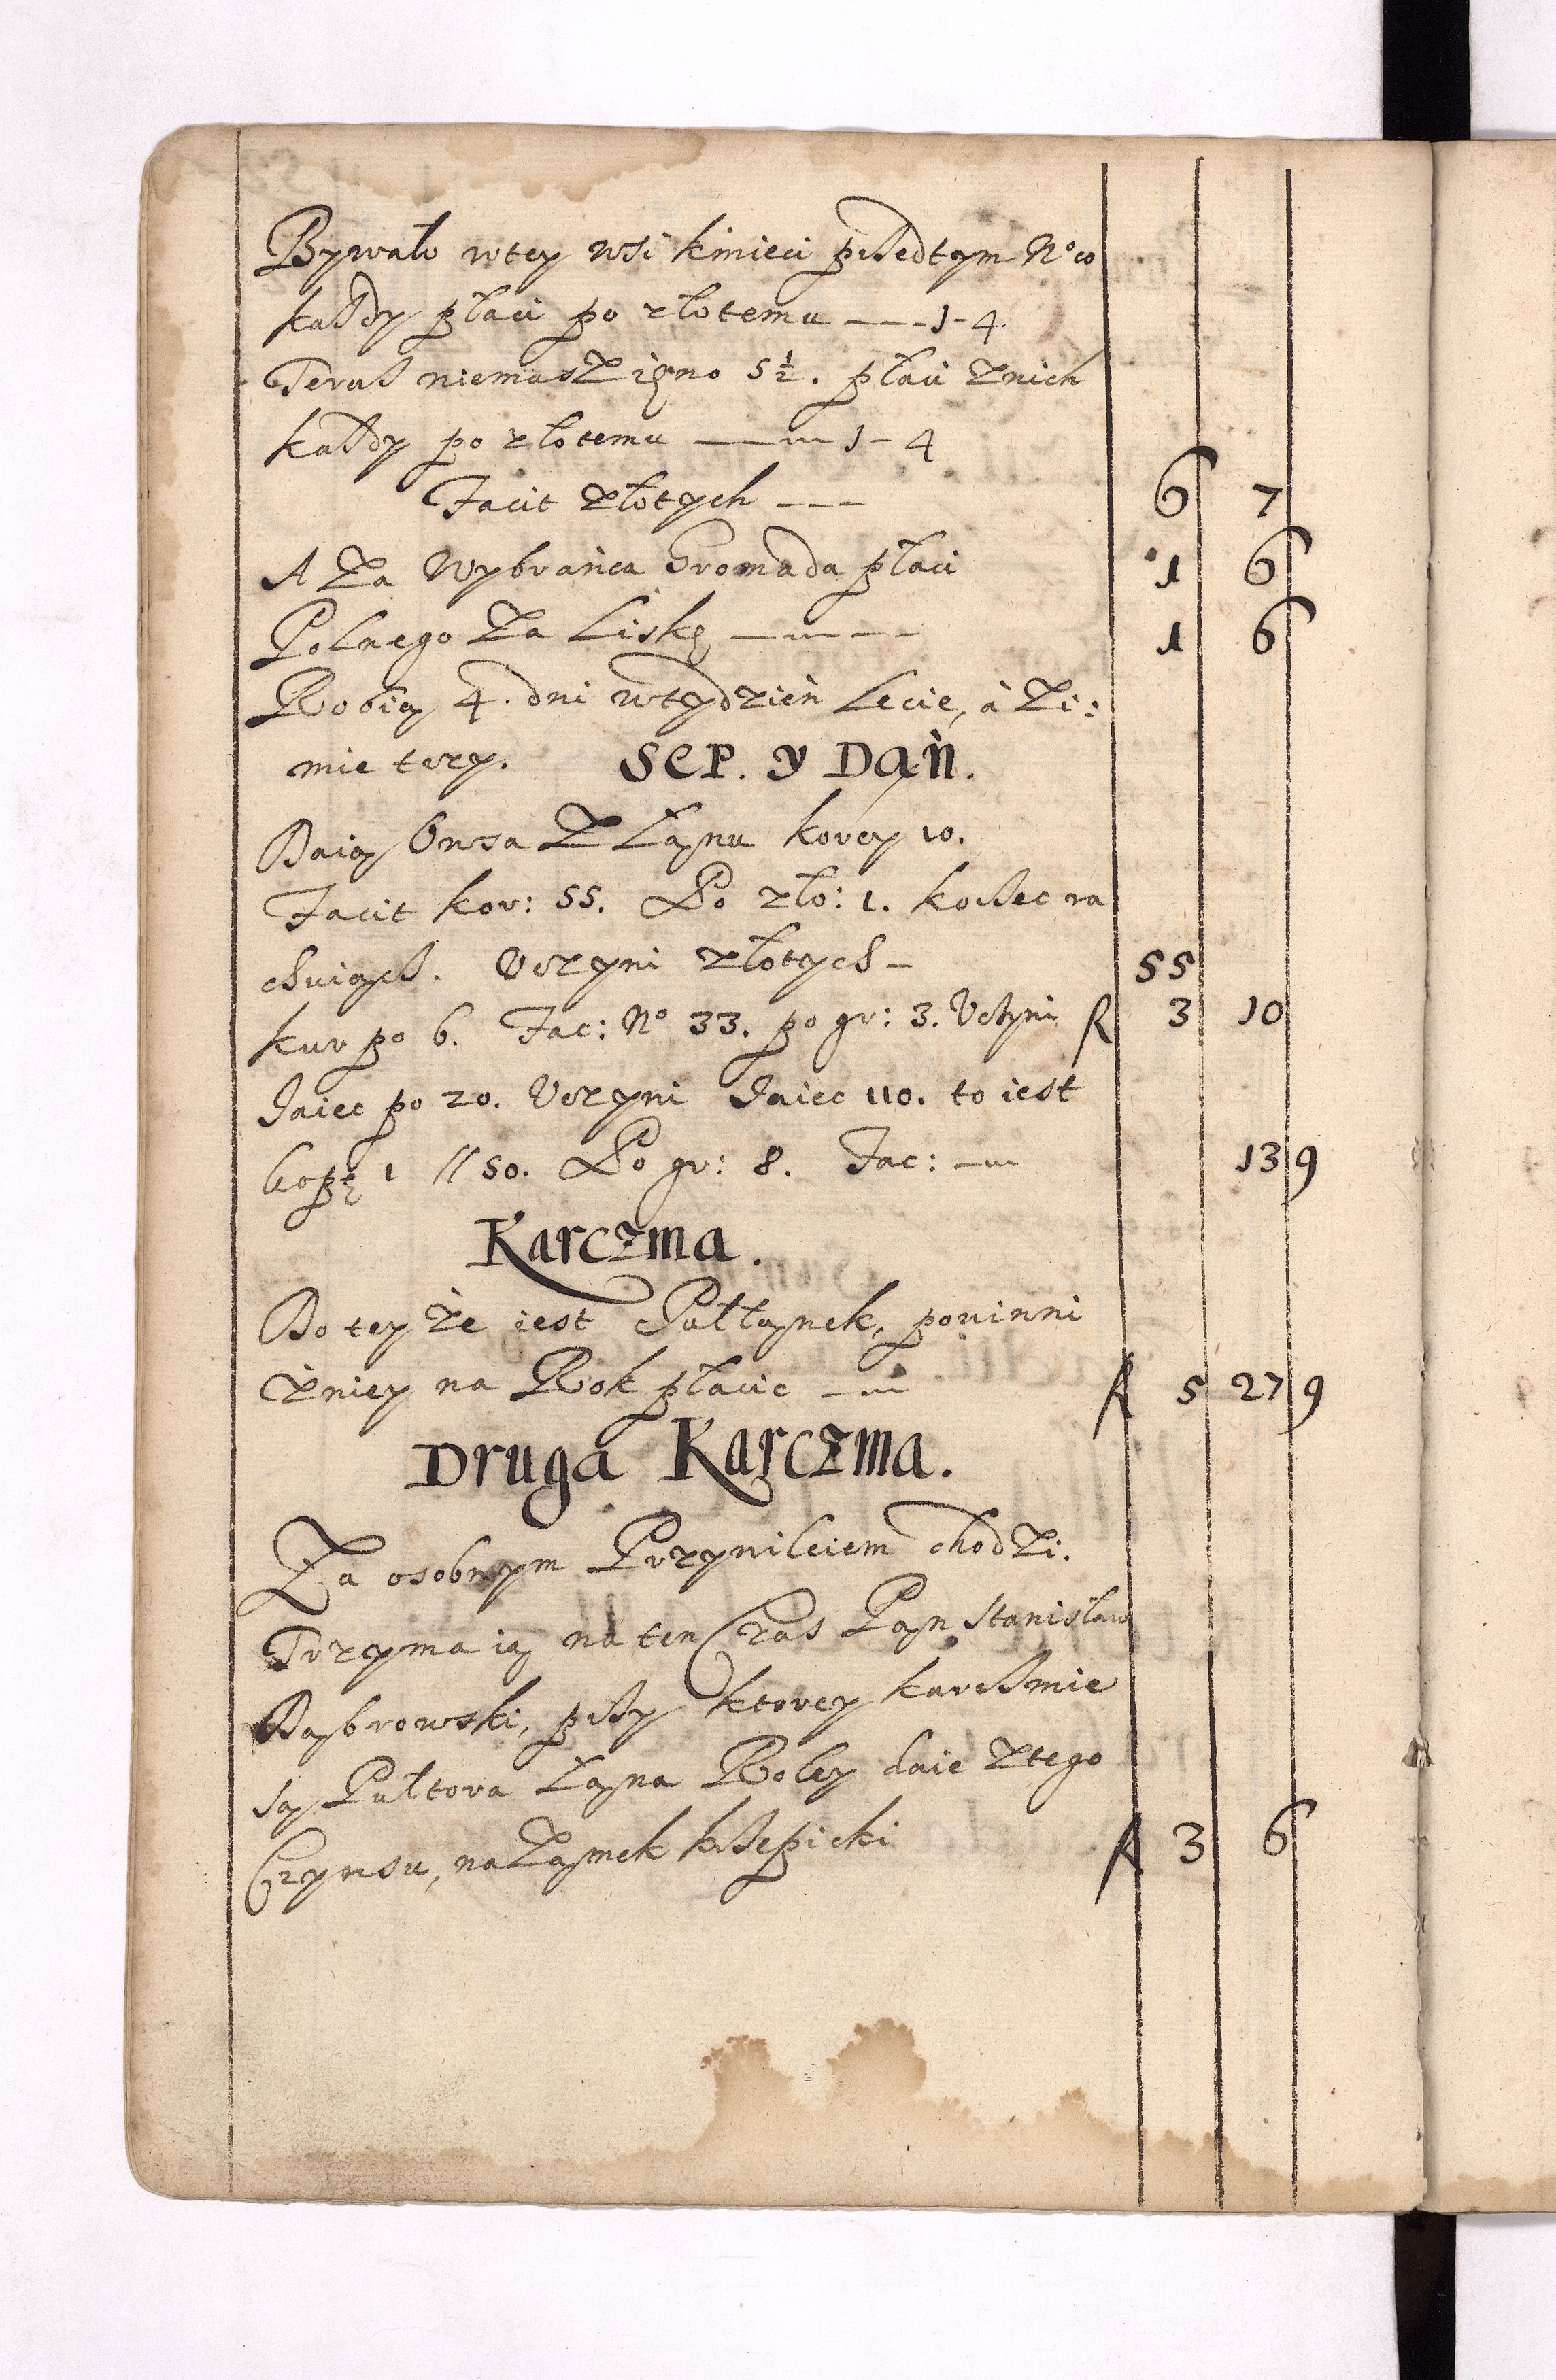 Bywało wtey wsi kmieci przedtym No 10
każdy płaci po złotemu ---1-4.
Teraz niemasz iędno 5½. płaci znich
każdy po złotemu --- 1-4
Facit złotych --- 6 7
A za Wybrańca Gromada płaci 1 6
Polnego za Liskę --- 1 6
Robią 4. dni wtydzień Lecie, à zi:
mie trzy. SEP. y DAŃ.
Daią Owsa z Łanu korcy 10.
Facit kor: 55. Po zło: 1. korzec ra
chuiąch. Uczyni złotych - 55
kur po 6. Fac: No 33. po gr: 3. Uczyni f 3 10
Jaiec po 20. Uczyni Jaiec 110. to iest
kopę 1 // 50. Po gr: 8. Fac: --- 13 9
Karczma.
Do tey że iest Pułłanek, powinni
zniey na Rok płacic --- f 5 27 9
Druga Karczma.
Za osobnym Przywileiem chodzi.
Trzyma ią na ten Czas Pan Stanisław
Dąbrowski, przy ktorey karczmie
są Pułtora Łana Roley daie ztego
Czynsu, na Zamek krzepicki f 3 6